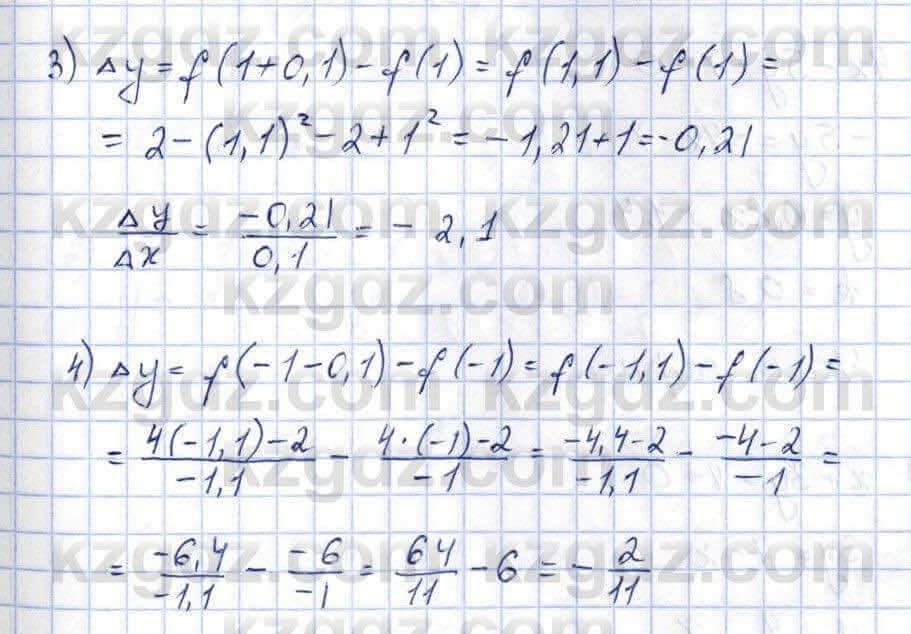 3) Δy = f(1+0,1) - f(1) = f(1,1) - f(1) =
= 2 - (1,1)² - 2 + 1² = -1,21 + 1 = -0,21
Δy/Δx = -0,21/0,1 = -2,1
4) Δy = f(-1-0,1) - f(-1) = f(-1,1) - f(-1) =
= 4(-1,1)-2/-1,1 - 4·(-1)-2/-1 = -4,4-2/-1,1 - -4-2/-1 =
= -6,4/-1,1 - -6/-1 = 64/11 - 6 = -2/11
kzgdz.com